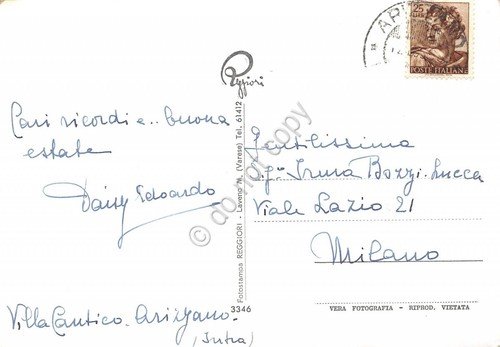 Cari ricordi e.. buona
estate
Daisy Edoardo
Villa Cantico. Arizzano.
(Intra)
Reggiori
Fotostampa REGGIORI - Laveno M. (Varese) Tel. 61412
3346
25
POSTE ITALIANE
Gentilissima
Sig.ra Irma Bozzi-Lucca
Viale Lazio 21
Milano
VERA FOTOGRAFIA - RIPROD. VIETATA
© do not copy